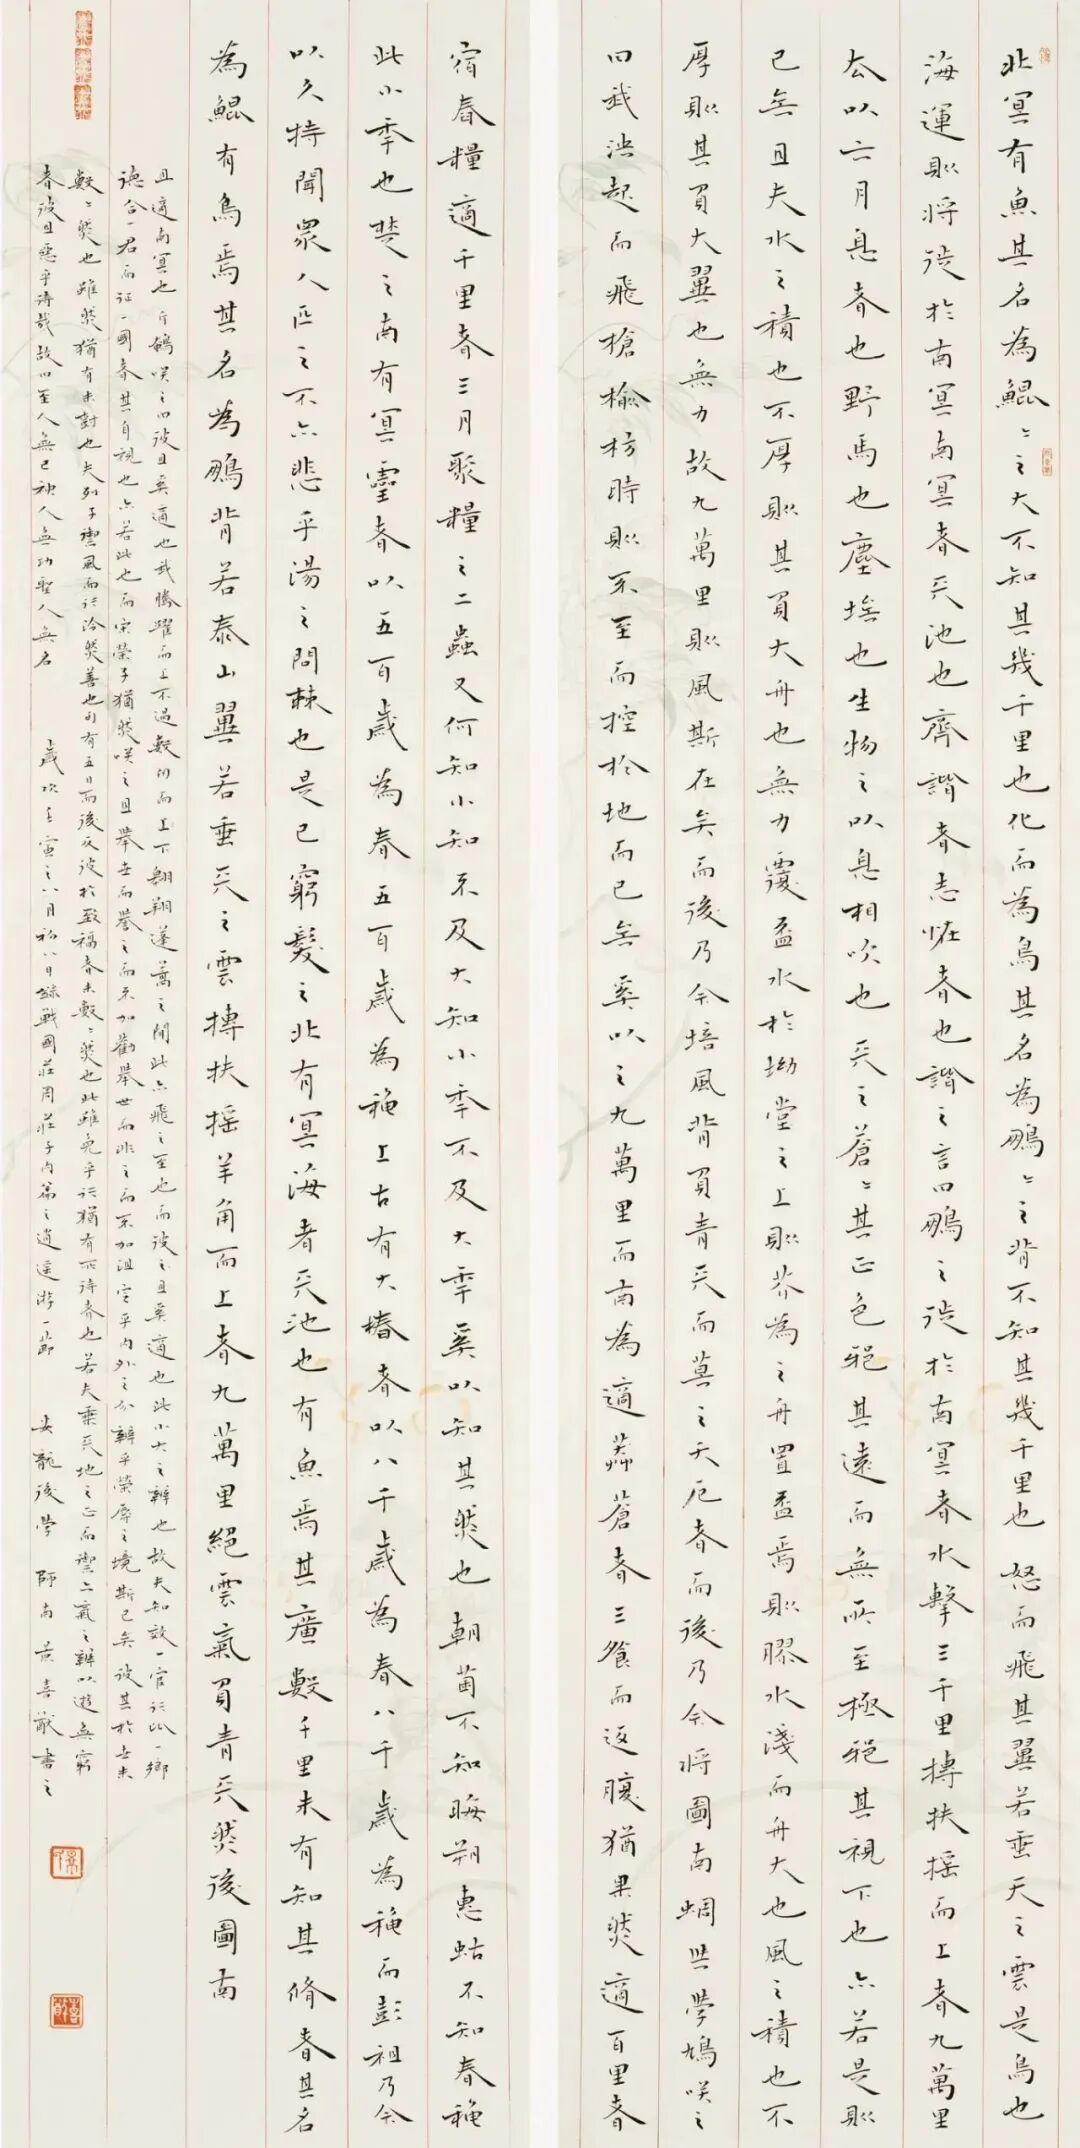 北冥有魚其名為鯤〻之大不知其幾千里也化而為鳥其名為鵬〻之背不知其幾千里也 怒而飛其翼若垂天之雲是鳥也
海運則將徙於南冥南冥者天池也齊諧者志怪者也諧之言曰鵬之徙於南冥者水擊三千里摶扶搖而上者九萬里
去以六月息者也野馬也塵埃也生物之以息相吹也天之蒼〻其正色邪其遠而無所至極邪其視下也亦若是則
已矣且夫水之積也不厚則其負大舟也無力覆盃水於坳堂之上則芥為之舟置盃焉則膠水淺而舟大也風之積也不
厚則其負大翼也無力故九萬里則風斯在矣而後乃今培風背負青天而莫之夭厄者而後乃今將圖南蜩與學鳩笑之
曰我決起而飛槍榆枋時則不至而控於地而已矣奚以之九萬里而南為適莽蒼者三飡而返腹猶果然適百里者
宿舂糧適千里者三月聚糧之二蟲又何知小知不及大知小年不及大年奚以知其然也朝菌不知晦朔惠蛄不知春秋
此小年也楚之南有冥靈者以五百歲為春五百歲為秋上古有大椿者以八千歲為春八千歲為秋而彭祖乃今
以久特聞眾人匹之不亦悲乎湯之問棘也是已窮髮之北有冥海者天池也有魚焉其廣數千里未有知其修者其名
為鯤有鳥焉其名為鵬背若泰山翼若垂天之雲摶扶搖羊角而上者九萬里絕雲氣負青天然後圖南
且適南冥也斥鴳笑之曰彼且奚適也我騰躍而上不過數仞而上下翱翔蓬蒿之間此亦飛之至也而彼之且奚適也此小大之辨也故夫知效一官行比一鄉
德合一君而征一國者其自視也亦若此也而宋榮子猶然笑之且舉世而譽之而不加勸舉世而非之而不加沮定乎內外之分辨乎榮辱之境斯已矣彼其於世未
數〻然也雖然猶有未樹也夫列子御風而行泠然善也旬有五日而後反彼於致福者未數〻然也此雖免乎行猶有所待者也若夫乘天地之正而御六氣之辨以遊無窮
者彼且惡乎待哉故曰至人無己神人無功聖人無名 歲次壬寅之八月初八日錄戰國莊周莊子內篇之逍遙游一節 後學 師南黃喜猷書之